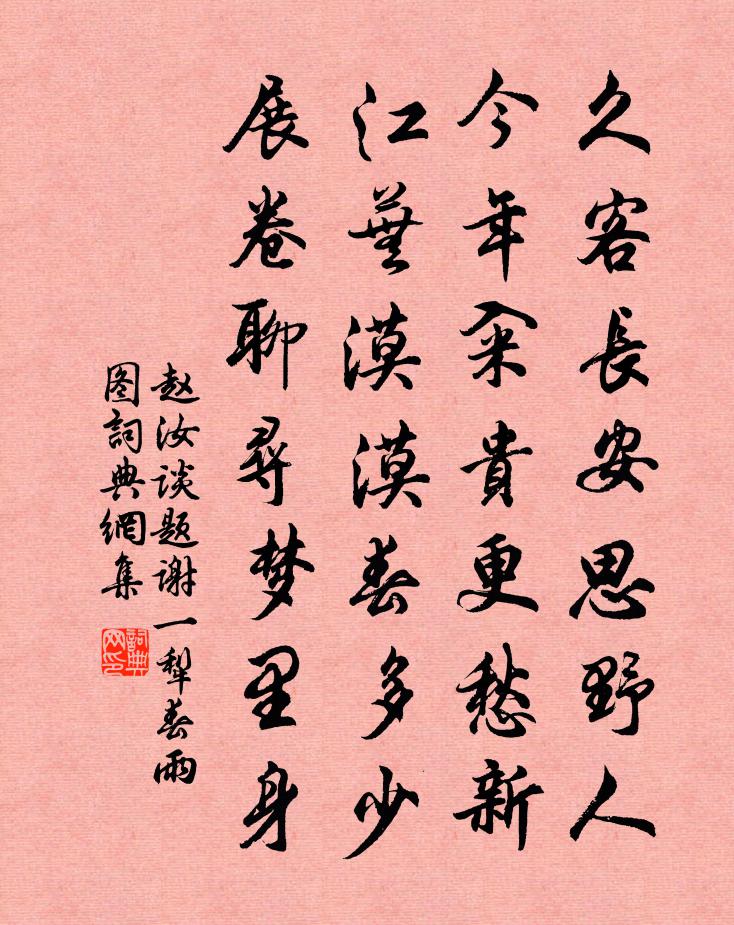 久客長安思野人
今年籴貴更愁新
江蕪漠漠春多少
展卷聊尋梦里身
赵汝谈题谢一犁春雨
图詞典網集
詞典网印